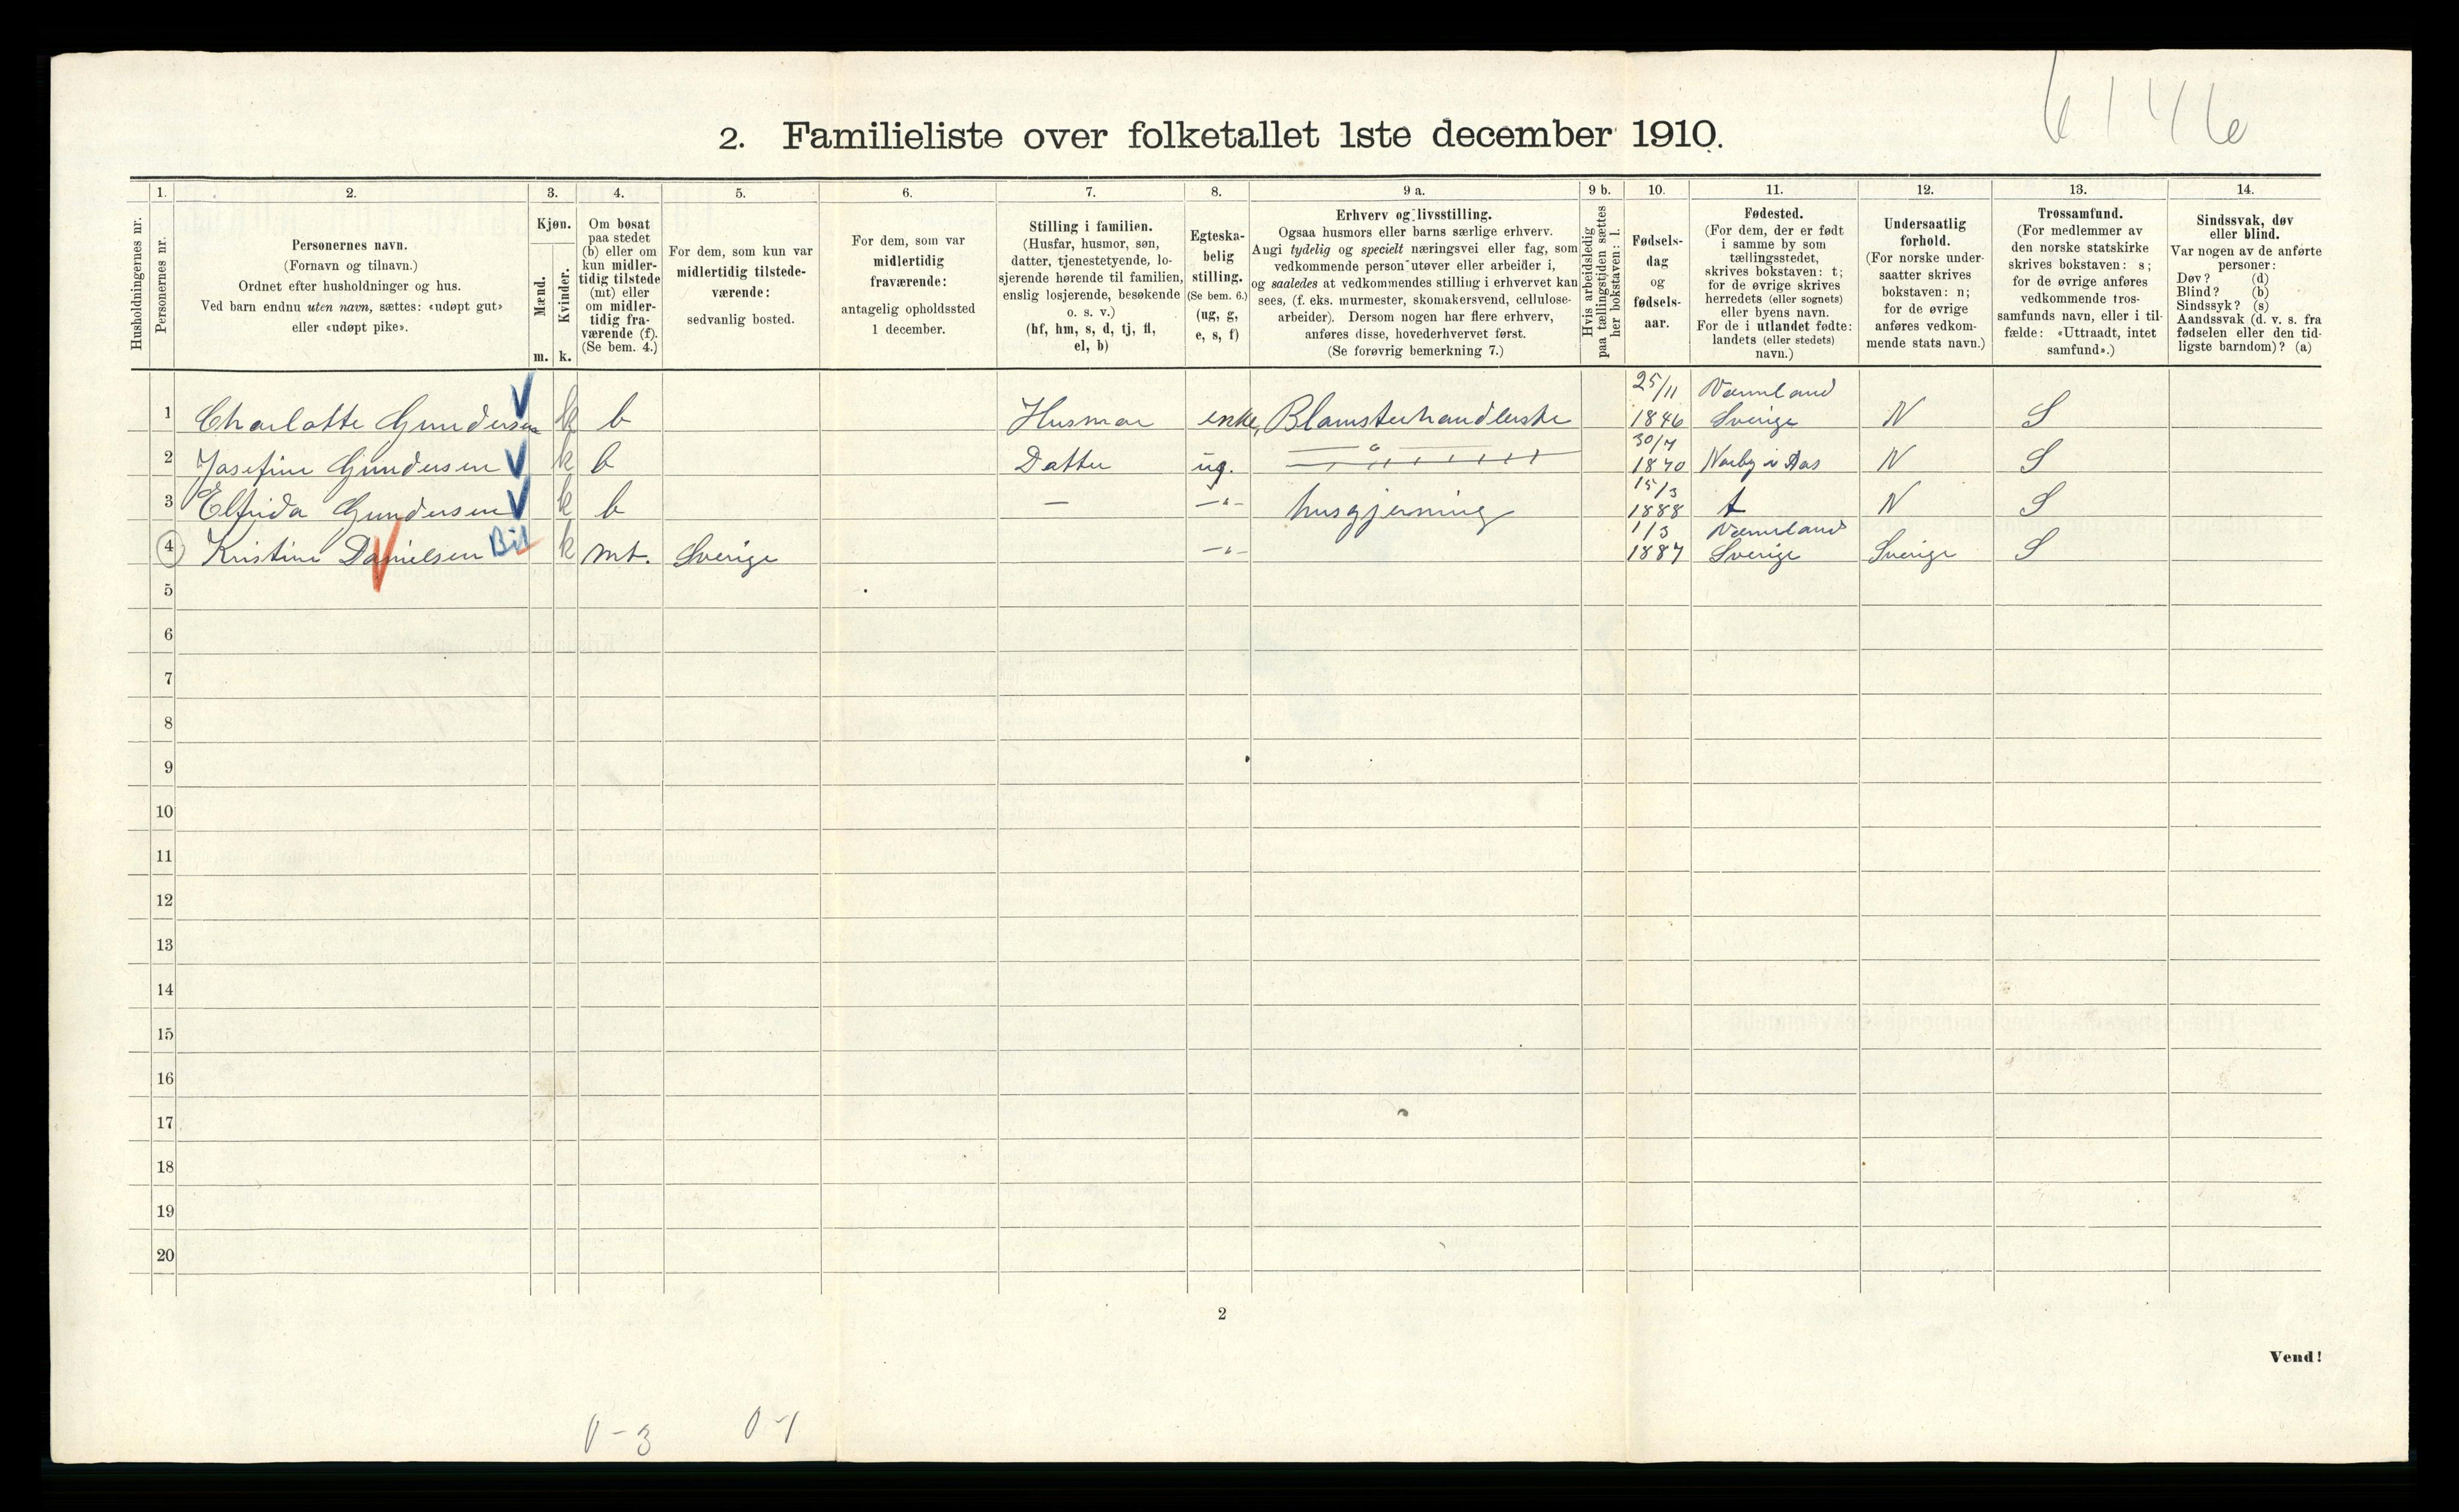 6146
2. Familieliste over folketallet 1ste december 1910.
1. 2. 3. 4. 5. 6. 7. 8. 9 a. 9 b. 10. 11. 12. 13. 14.
Husholdningernes nr.
Personernes nr.
Personernes navn.
(Fornavn og tilnavn.)
Ordnet efter husholdninger og hus.
Ved barn endnu uten navn, sættes: «udøpt gut»
eller «udøpt pike».
Kjøn.
Mænd.
m.
Kvinder.
k.
Om bosat
paa stedet
(b) eller om
kun midler-
tidig tilstede
(mt) eller
om midler-
tidig fra-
værende (f).
(Se bem. 4.)
For dem, som kun var
midlertidig tilstede-
værende:
sedvanlig bosted.
For dem, som var
midlertidig
fraværende:
antagelig opholdssted
1 december.
Stilling i familien.
(Husfar, husmor, søn,
datter, tjenestetyende, lo-
sjerende hørende til familien,
enslig losjerende, besøkende
o. s. v.)
(hf, hm, s, d, tj, fl,
el, b)
Egteska-
belig
stilling.
(Se bem. 6.)
(ug, g,
e, s, f)
Erhverv og livsstilling.
Ogsaa husmors eller barns særlige erhverv.
Angi tydelig og specielt næringsvei eller fag, som
vedkommende person utøver eller arbeider i,
og saaledes at vedkommendes stilling i erhvervet kan
sees, (f. eks. murmester, skomakersvend, cellulose-
arbeider). Dersom nogen har flere erhverv,
anføres disse, hovederhvervet først.
(Se forøvrig bemerkning 7.)
Hvis arbeidsledig
paa tællingstiden sættes
her bokstaven: l.
Fødsels-
dag
og
fødsels-
aar.
Fødested.
(For dem, der er født
i samme by som
tællingsstedet,
skrives bokstaven: t;
for de øvrige skrives
herredets (eller sognets)
eller byens navn.
For de i utlandet fødte:
landets (eller stedets)
navn.)
Undersaatlig
forhold.
(For norske under-
saatter skrives
bokstaven: n;
for de øvrige
anføres vedkom-
mende stats navn.)
Trossamfund.
(For medlemmer av
den norske statskirke
skrives bokstaven: s;
for de øvrige anføres
vedkommende tros-
samfunds navn, eller i til-
fælde: «Uttraadt, intet
samfund».)
Sindssvak, døv
eller blind.
Var nogen av de anførte
personer:
Døv? (d)
Blind? (b)
Sindssyk? (s)
Aandssvak (d. v. s. fra
fødselen eller den tid-
ligste barndom)? (a)
25/11 Værmland
1 Charlotte Gundersen k b Husmor enke, Blomsterhandlerske 1846 Sverige N S
30/7
2 Josefine Gundersen k b Datter ug. — " — 1870 Norby i Aas N S
15/3
3 Elfrida Gundersen k b — —"— husgjerning 1888 t N S
1/3 Værmland
4 Kristine Danielsen k mt. Sverige —"— 1887 Sverige Sverige S
5
6
7
8
9
10
11
12
13
14
15
16
17
18
19
20
2
Vend!
0-3 0-1